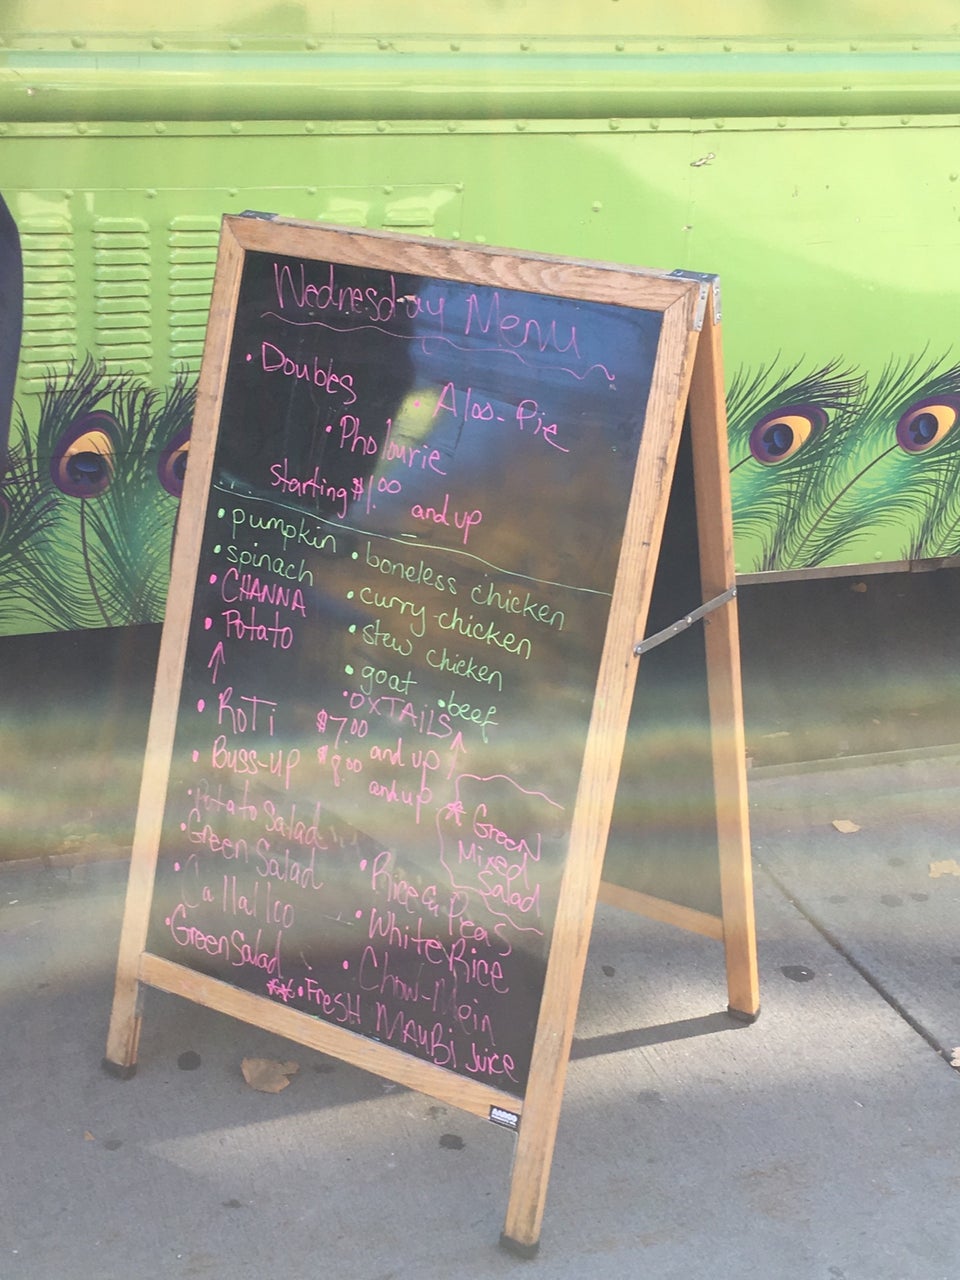 Wednesday Menu
• Doubles
• Aloo-Pie
• Pholourie
starting $1.00 and up
• pumpkin
• spinach
• CHANNA
• Potato
↑
• boneless chicken
• curry-chicken
• stew chicken
• goat • beef
• OXTAILS
↑
• ROTI $7.00 and up
• Buss-up $8.00 and up
• Potato Salad
• Green Salad
• Callalloo
• Green Salad
* Green
Mixed
Salad
• Rice & Peas
• White Rice
• Chow-Mein
**• FresH MAuBi Juice